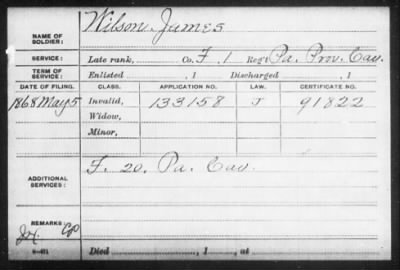 NAME OF SOLDIER: Wilson, James
SERVICE: Late rank, Co. F, 1 Reg't Pa. Prov. Cav.
TERM OF SERVICE: Enlisted , 1 Discharged , 1
DATE OF FILING. CLASS. APPLICATION NO. LAW. CERTIFICATE NO.
1868 May 5 Invalid, 133158 91822
Widow,
Minor,
ADDITIONAL SERVICES: F. 20. Pa. Cav.
REMARKS:
Died , 1 , at